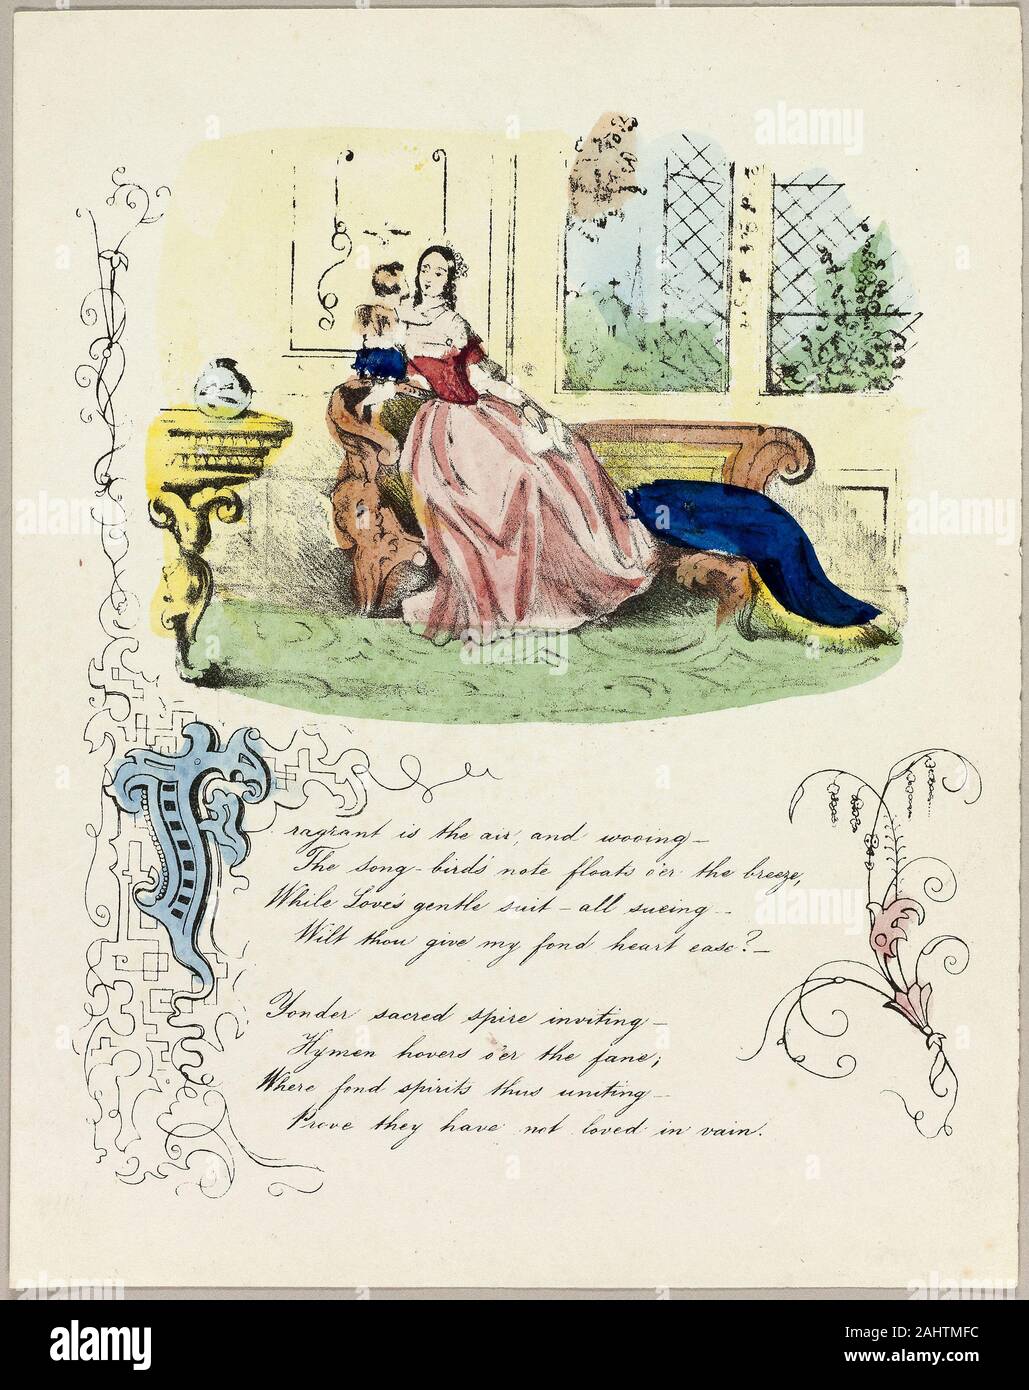 Fragrant is the air, and wooing —
The song-bird's note floats o'er the breeze,
While Love's gentle suit — all sueing —
Wilt thou give my fond heart ease? —
Yonder sacred spire inviting —
Hymen hovers o'er the fane;
Where fond spirits thus uniting —
Prove they have not loved in vain.
alamy
Image ID: 2AHTMFC
www.alamy.com